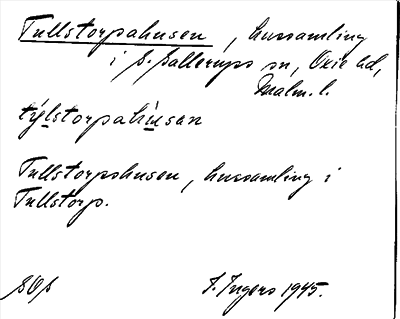 Tullstorpahusen, hussamling
i S. Sallerups sn, Oxie hd,
Malm. l.
týlstorpahùsan
Tullstorpshusen, hussamling i
Tullstorp.
I. Ingers 1945.